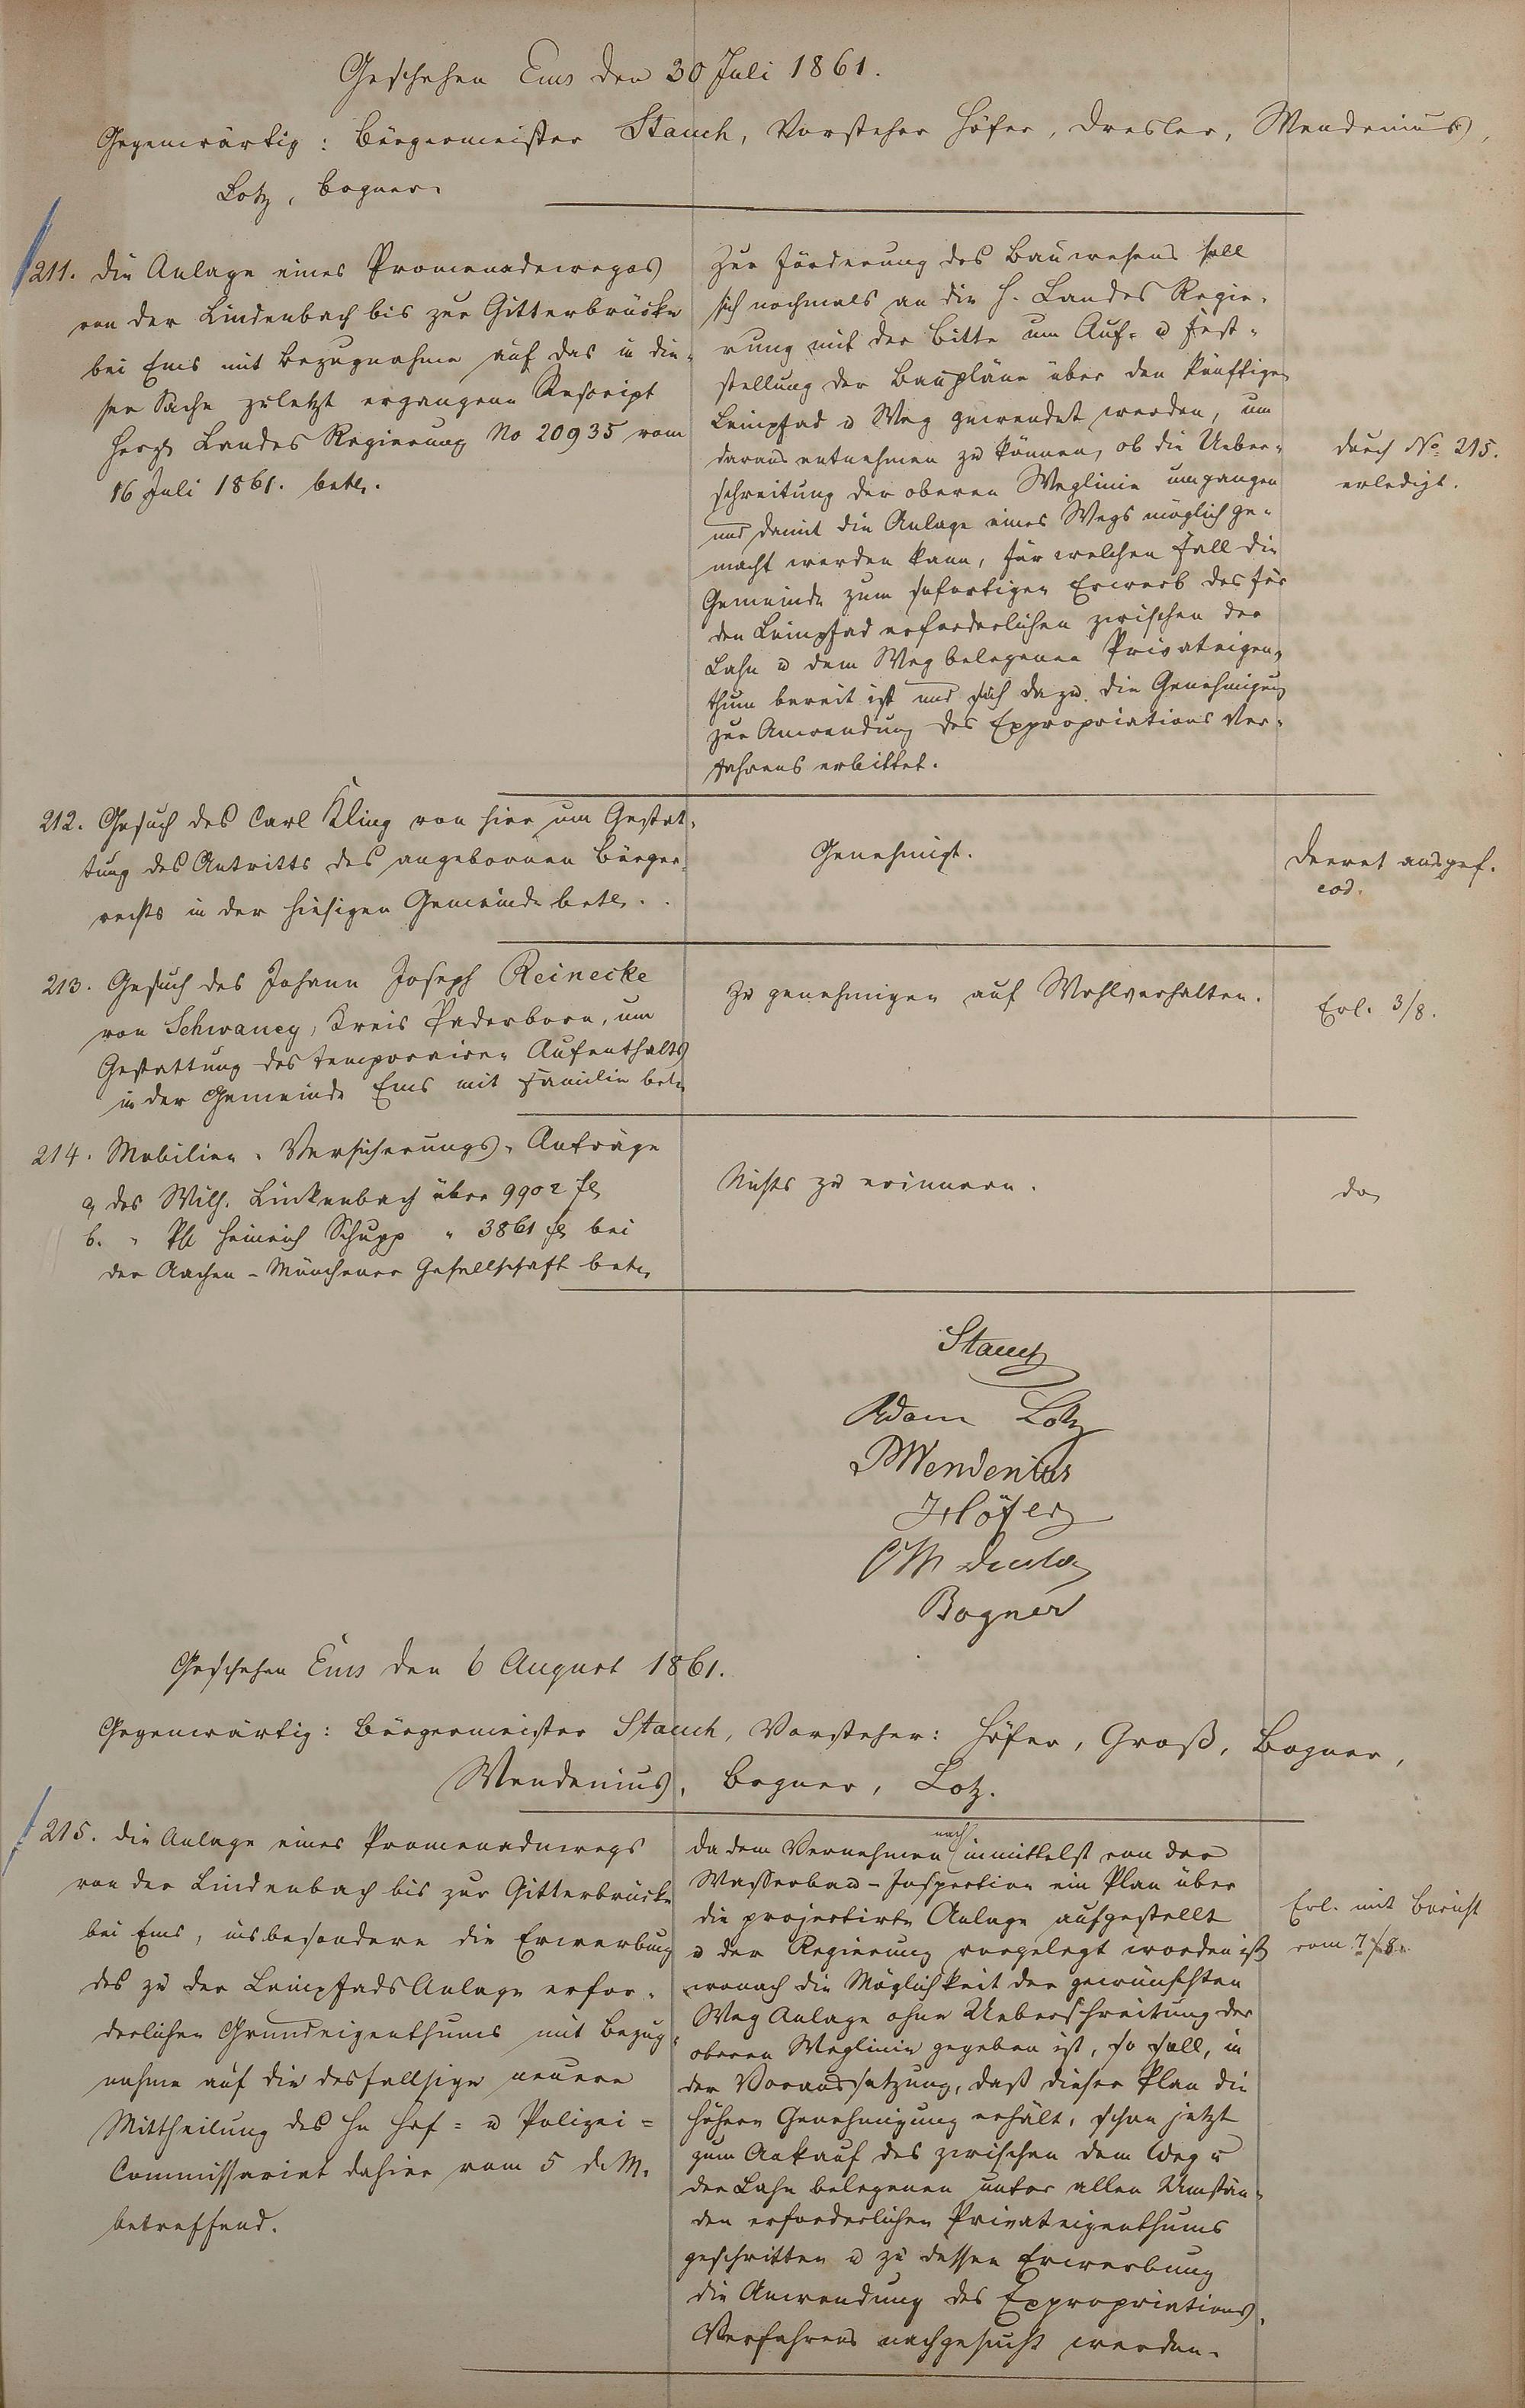 Geschehen Ems den 30 Juli 1861.
Gegenwärtig: Bürgermeister Stauch, Vorsteher Höfer, Dresler, Wendenius,
Lotz, Bogner.
211. Die Anlage eines Promenadeweges
von der Lindenbach bis zur Gitterbrücke
bei Ems mit Bezugnahme auf das in die-
ser Sache zuletzt ergangene Rescript
Herzgl Landes Regierung No 20935 vom
16 Juli 1861. betr.
Zur Förderung des Bauwesens soll
sich nochmals an die H. Landes Regie-
rung mit der Bitte um Auf- u Fest-
stellung der Baupläne über den künftigen
Leinpfad u Weg gewendet werden, um
daraus entnehmen zu können, ob die Ueber-
schreitung der oberen Weglinie umgangen
und damit die Anlage eines Wegs möglich ge-
macht werden kann, für welchen Fall die
Gemeinde zum sofortigen Erwerb des für
den Leinpfad erforderlichen zwischen der
Lahn u dem Weg belegenen Privateigen-
thum bereit ist und sich dazu die Genehmigung
zur Anwendung des Expropriations Ver-
fahrens erbittet.
durch No 215.
erledigt.
212. Gesuch des Carl Kling von hier um Gestat-
tung des Antritts des angebornen Bürger-
rechts in der hiesigen Gemeinde betr.
Genehmigt.
Decret ausgef.
eod.
213. Gesuch des Johann Joseph Reinecke
von Schwaney, Kreis Paderborn, um
Gestattung des temporairen Aufenthalts
in der Gemeinde Ems mit Familie betr
Zu genehmigen auf Wohlverhalten.
Erl. 3/8.
214. Mobilien-Versicherungs-Anträge
a, des Wilh. Linkenbach über 9902 fl
b. " Ph Heinrich Schupp " 3861 fl bei
der Aachen-Münchener Gesellschaft betr
Nichts zu erinnern.
do
Stauch
Adam Lotz
Wendenius
Höfer
Dresler
Bogner
Geschehen Ems den 6 August 1861.
Gegenwärtig: Bürgermeister Stauch, Vorsteher: Höfer, Groß, Bogner,
Wendenius, Bogner, Lotz.
215. Die Anlage eines Promenadewegs
von der Lindenbach bis zur Gitterbrücke
bei Ems, insbesondere die Erwerbung
des zu der Leinpfads Anlage erfor-
derlichen Grundeigenthums mit Bezug-
nahme auf die desfallsige neuere
Mittheilung des Hn Hof- u Polizei-
Commissariat dahier vom 5 d. M.
betreffend.
Da dem Vernehmen nach inmittelst von der
Wasserbau-Inspection ein Plan über
die projectirte Anlage aufgestellt
u der Regierung vorgelegt worden ist
wonach die Möglichkeit der gewünschten
Weg Anlage ohne Ueberschreitung der
oberen Weglinie gegeben ist, so soll, in
der Voraussetzung, daß dieser Plan die
höhere Genehmigung erhält, schon jetzt
zum Ankauf des zwischen dem Weg u
der Lahn belegenen unter allen Umstän-
den erforderlichen Privateigenthums
geschritten u zu dessen Erwerbung
die Anwendung des Expropriations-
Verfahrens nachgesucht werden.
Erl. mit Bericht
vom 7/8.